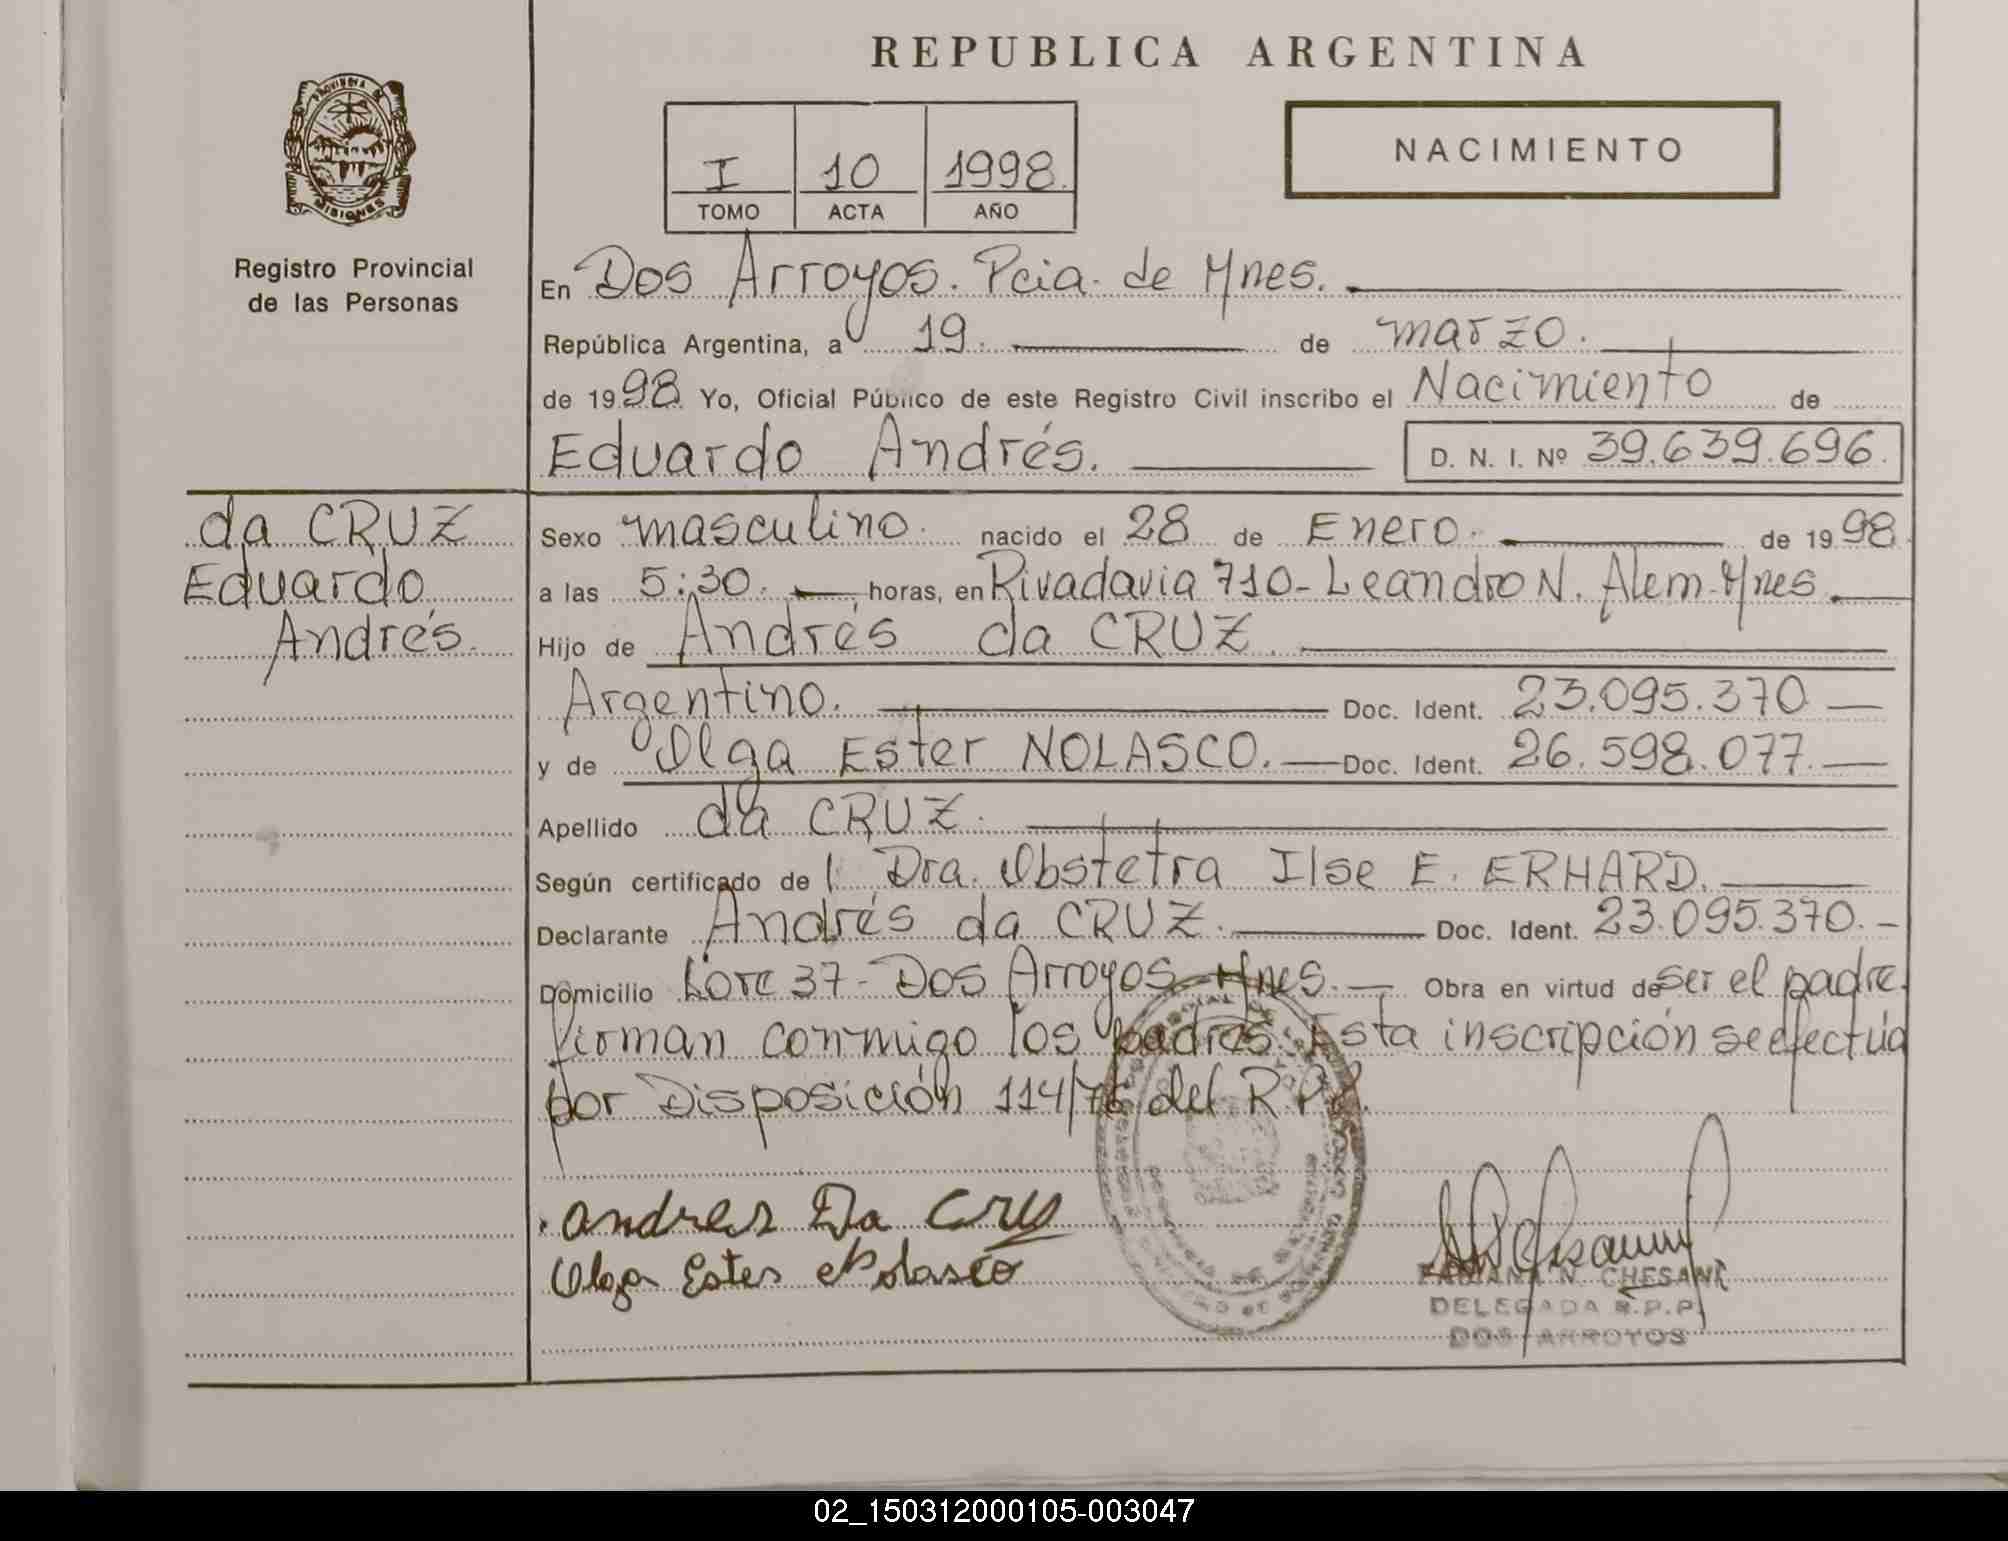 REPUBLICA ARGENTINA
PROVINCIA DE
MISIONES
Registro Provincial
de las Personas
I 10 1998.
TOMO ACTA AÑO
NACIMIENTO
En Dos Arroyos. Pcia. de Mnes.
República Argentina, a 19. de marzo.
de 1998. Yo, Oficial Público de este Registro Civil inscribo el Nacimiento de
Eduardo Andrés. D. N. I. Nº 39.639.696.
da CRUZ
Eduardo
Andrés.
Sexo masculino. nacido el 28 de Enero. de 1998
a las 5:30. horas, en Rivadavia 710-Leandro N. Alem-Mnes.
Hijo de Andrés da CRUZ.
Argentino. Doc. Ident. 23.095.370
y de Olga Ester NOLASCO. Doc. Ident. 26.598.077.
Apellido da CRUZ.
Según certificado de l Dra. Obstetra Ilse E. ERHARD.
Declarante Andrés da CRUZ. Doc. Ident. 23.095.370.-
Domicilio Lote 37-Dos Arroyos-Mnes.- Obra en virtud de ser el padre.
firman conmigo los padres. Esta inscripción se efectúa
por Disposición 114/76 del R.P.P.
Andres Da Cruz
Olga Ester Nolasco
FABIANA N. CHESANI
DELEGADA R.P.P.
DOS ARROYOS
02_150312000105-003047